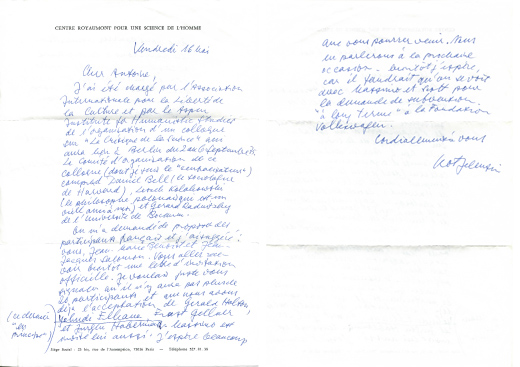 CENTRE ROYAUMONT POUR UNE SCIENCE DE L'HOMME
Vendredi 16 Mai
Cher Antoine,
J'ai été chargé par l'Association
Internationale pour la Liberté de
la Culture et par le Aspen
Institute for Humanistic Studies
de l'organisation d'un colloque
sur "La Critique de la Science" qui
aura lieu à Berlin du 2 au 6 septembre.
Le Comité d'organisation de ce
colloque (dont je suis le "centralisateur")
comprend Daniel Bell (le sociologue
de Harvard), Leszek Kolakowski
(le philosophe polonais
et Gerard Radnitzky
de l'Université de
On m'a demandé de proposer des
participants français et j'ai
vous, Jean-Marie et Jean-
Jacques Salomon. Vous allez rece-
voir bientôt une lettre d'invitation
officielle. Je voulais juste vous
signaler qu'il n'y aura pas plus de
participants et que nous avons
déjà l'acceptation de Gerald Holton,
Yehuda Elkana, Ernest Gellner,
et Jürgen Habermas. Massimo est
invité lui aussi. J'espère beaucoup
(ce dernier
"en
principe")
Siège Social : rue de l'Assomption, 75016 Paris — Téléphone 527
que vous pourrez venir. Nous
en parlerons à la prochaine
occasion - bientôt j'espère,
car il faudrait qu'on se voit
avec Massimo et pour
la demande de subvention
"à long terme" à la Fondation
Volkswagen.
Cordialement à vous